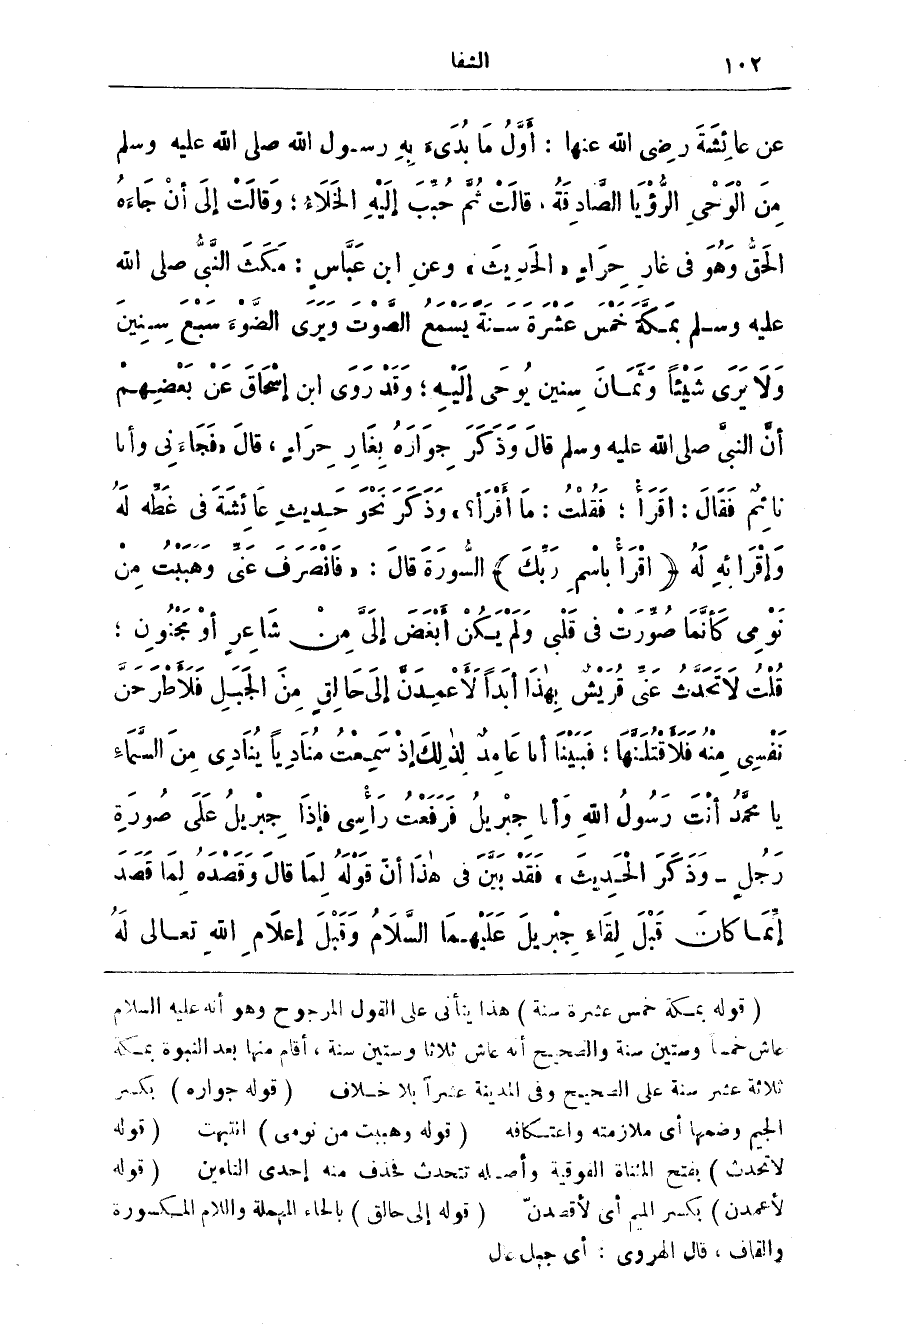 ١٠٢ الشفا
عن عائِشَةَ رضى الله عنها : أَوَّلُ مَا بُدِىءَ بِهِ رسول الله صلى الله عليه وسلم
مِنَ الْوَحْىِ الرُّؤْيَا الصَّادِقَةُ ، قالَتْ ثُمَّ حُبِّبَ إِلَيْهِ الخَلَاءُ ؛ وَقالَتْ إِلَى أَنْ جَاءَهُ
الحَقُّ وَهُوَ فى غارِ حِرَاءٍ «الحَدِيثَ» وعنِ ابنِ عَبَّاسٍ : مَكَثَ النَّبىُّ صلى الله
عليه وسلم بمَكَّةَ خَمْسَ عَشْرَةَ سَنَةً يَسْمَعُ الصَّوْتَ وَيَرَى الضَّوْءَ سَبْعَ سِنِينَ
وَلَا يَرَى شَيْئاً وَثَمَانَ سِنِينَ يُوحَى إِلَيْهِ ؛ وَقَدْ رَوَى ابن إسْحَاقَ عَنْ بَعْضِهِمْ
أنَّ النبىَّ صلى الله عليه وسلم قالَ وَذَكَرَ جِوَارَهُ بِغَارِ حِرَاءٍ ، قالَ «فَجَاءَنِى وأنا
نائِمٌ فَقَالَ : اقْرَأْ ؛ فَقُلْتُ : مَا أَقْرَأُ؟» وَذَكَرَ نَحْوَ حَدِيثِ عَائِشَةَ فى غَطِّهِ لَهُ
وَإِقْرَائِهِ لَهُ ﴿ اقْرَأْ بِاسْمِ رَبِّكَ ﴾ السُّورَةَ قالَ : «فَانْصَرَفَ عَنِّى وَهَبَبْتُ مِنْ
نَوْمِى كَأَنَّمَا صُوِّرَتْ فى قَلْبى وَلَمْ يَكُنْ أَبْغَضَ إِلَىَّ مِنْ شَاعِرٍ أوْ مَجْنُونٍ ؛
قُلْتُ لَا تَحَدَّثُ عَنِّى قُرَيْشٌ بِهٰذَا أبَداً لَأَعْمِدَنَّ إِلَى حَالِقٍ مِنَ الجَبَلِ فَلَأَطْرَحَنَّ
نَفْسِى مِنْهُ فَلَأَقْتُلَنَّهَا ؛ فَبَيْنَا أنا عَامِدٌ لِذٰلِكَ إذْ سَمِعْتُ مُنَادِياً يُنَادِى مِنَ السَّمَاءِ
يا محَمَّدُ أنْتَ رَسُولُ اللهِ وَأنا جِبْرِيلُ فَرَفَعْتُ رَأْسِى فإذَا جِبْرِيلُ عَلَى صُورَةِ
رَجُلٍ ــ وَذَكَرَ الْحَدِيثَ» فَقَدْ بَيَّنَ فى هٰذَا أنّ قَوْلَهُ لِمَا قالَ وَقَصْدَهُ لِمَا قَصَدَ
إنَّمَا كانَ قَبْلَ لِقَاءِ جِبْرِيلَ عَلَيْهِمَا السَّلَامُ وَقَبْلَ إعْلَامِ اللهِ تعالى لَهُ
( قوله بمكة خمس عشرة سنة ) هذا يتأتى على القول المرجوح وهو أنه عليه السلام
عاش خمساً وستين سنة والصحيح أنه عاش ثلاثا وستين سنة ، أقام منها بعد النبوة بمكة
ثلاثة عشر سنة على الصحيح وفى المدينة عشراً بلا خلاف ( قوله جواره ) بكسر
الجيم وضمها أى ملازمته واعتكافه ( قوله وهببت من نومى ) انتبهت ( قوله
لاتحدث ) بفتح المثناة الفوقية وأصله تتحدث فحذف منه إحدى التاءين ( قوله
لأعمدن ) بكسر الميم أى لأقصدنّ ( قوله إلى حالق ) بالحاء المهملة واللام المكسورة
والقاف ، قال الهروى : أى جبل عال